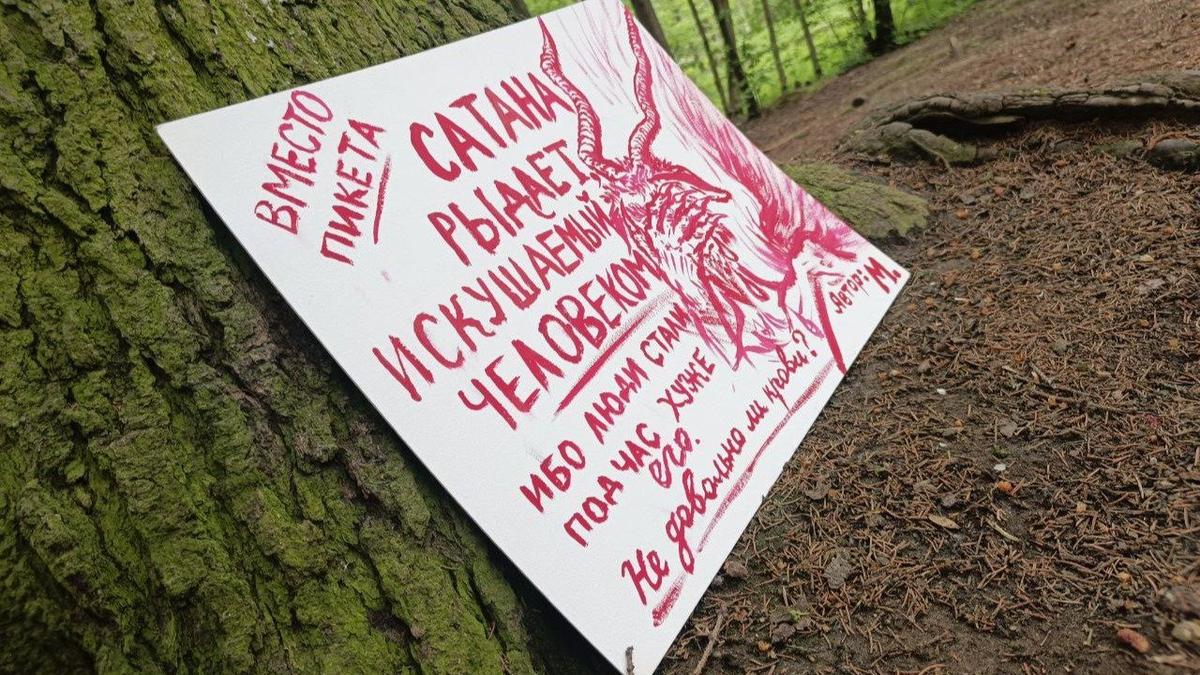 ВМЕСТО
ПИКЕТА
САТАНА
РЫДАЕТ
ИСКУШАЕМЫЙ
ЧЕЛОВЕКОМ
ИБО ЛЮДИ СТАЛИ
ПОД ЧАС ХУЖЕ
ЕГО.
Не довольно ли крови?
Автор: М.